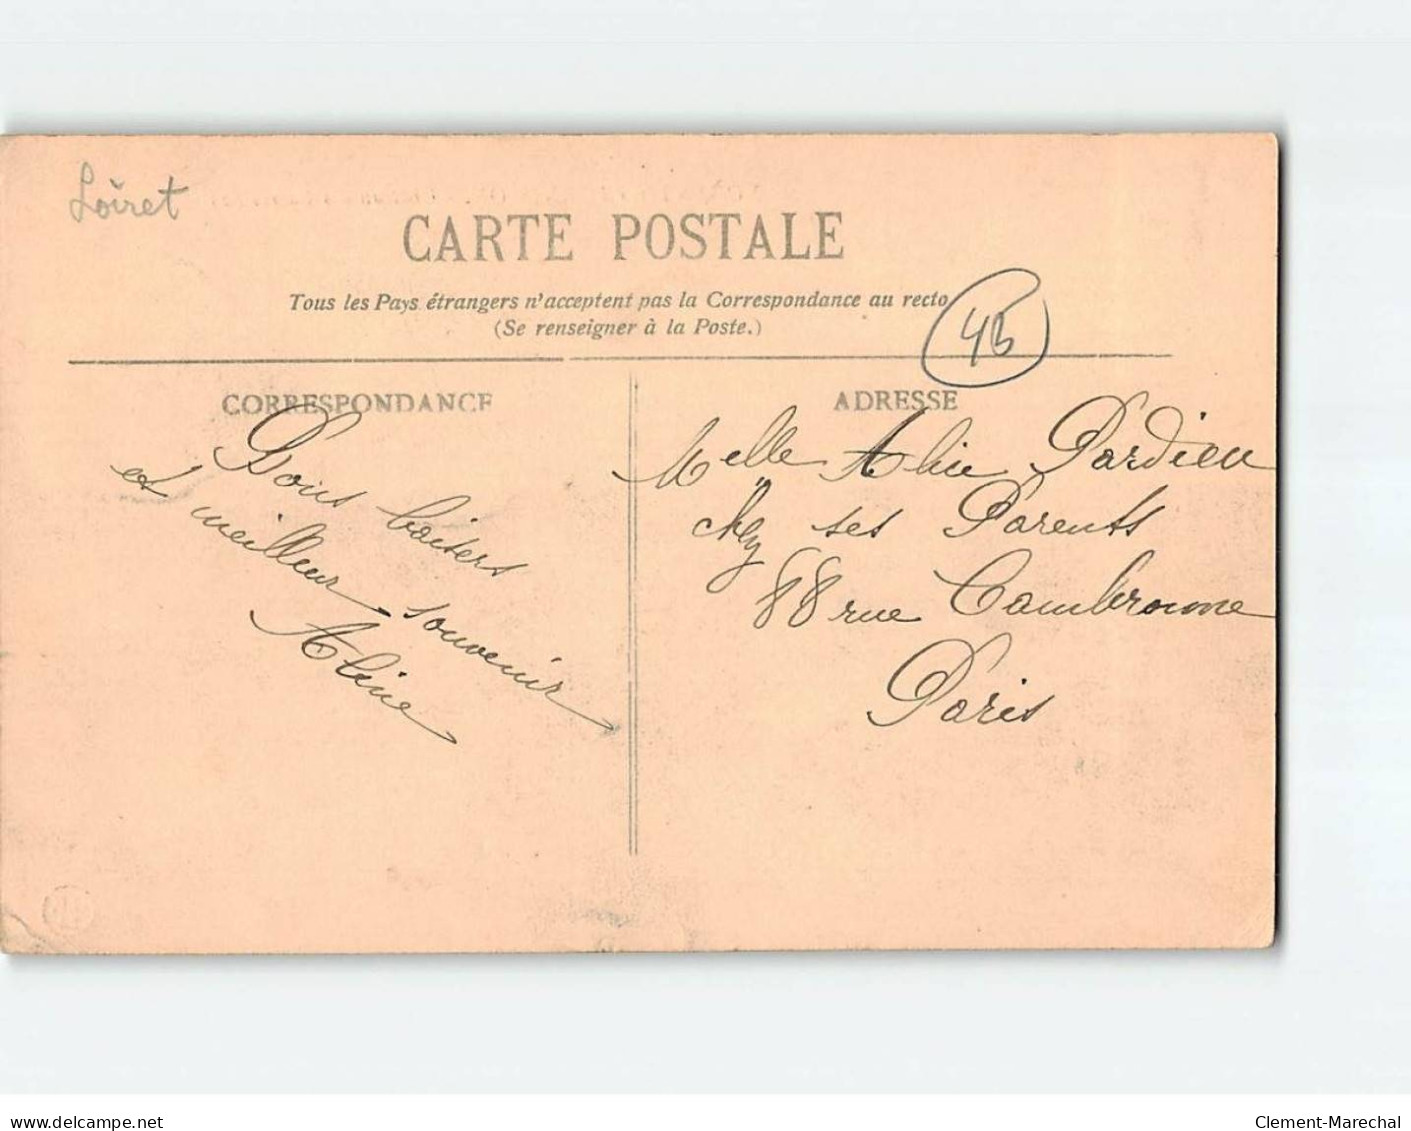 Loiret
CARTE POSTALE
Tous les Pays étrangers n'acceptent pas la Correspondance au recto
(Se renseigner à la Poste.)
45
CORRESPONDANCE
ADRESSE
Bons baisers
et meilleur souvenir
Aline
Melle Aline Pardieu
chez ses Parents
88 rue Cambronne
Paris
delcampe.net
Clement-Marechal